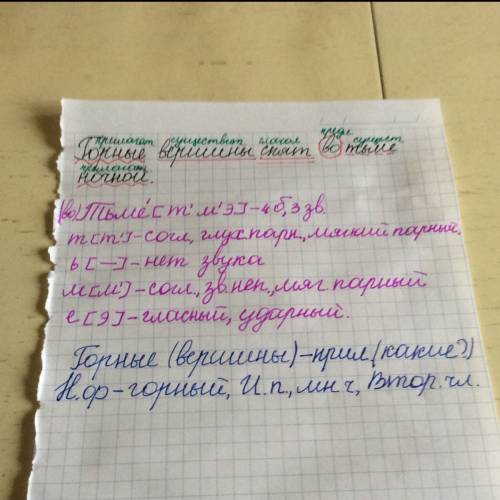 прилагат. существит. глагол предл сущест.
Горные вершины спят во тьме
прилагат.
ночной.
(во) Тьме́ [т' м' э] - 4 б, 3 зв.
т [т'] - согл, глух. парн., мягкий парный.
ь [—] - нет звука
м [м'] - согл., зв. неп., мяг парный
е [э] - гласный, ударный.
Горные (вершины) - прил. (какие?)
Н.ф - горный, И.п., мн ч, Втор. чл.